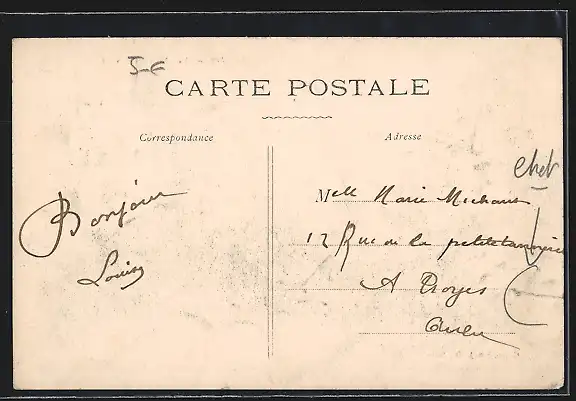 5-€
CARTE POSTALE
Correspondance
Adresse
Bonjour
Louis
Melle Marie Michaut
12 Rue de la petite tannerie
A Troyes
Aube